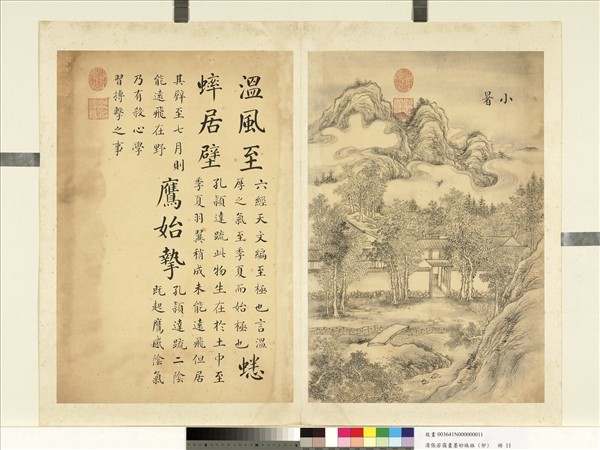 小暑
溫風至
六經天文編至極也言溫
厚之氣至季夏而始極也
蟋
蟀居壁
孔穎達疏此物生在於土中至
季夏羽翼稍成未能遠飛但居
其壁至七月則
能遠飛在野
鷹始摯
孔穎達疏二陰
既起鷹感陰氣
乃有殺心學
習搏擊之事
故畫 003641N000000011
清張若靄畫墨妙珠林（卯） 冊 11